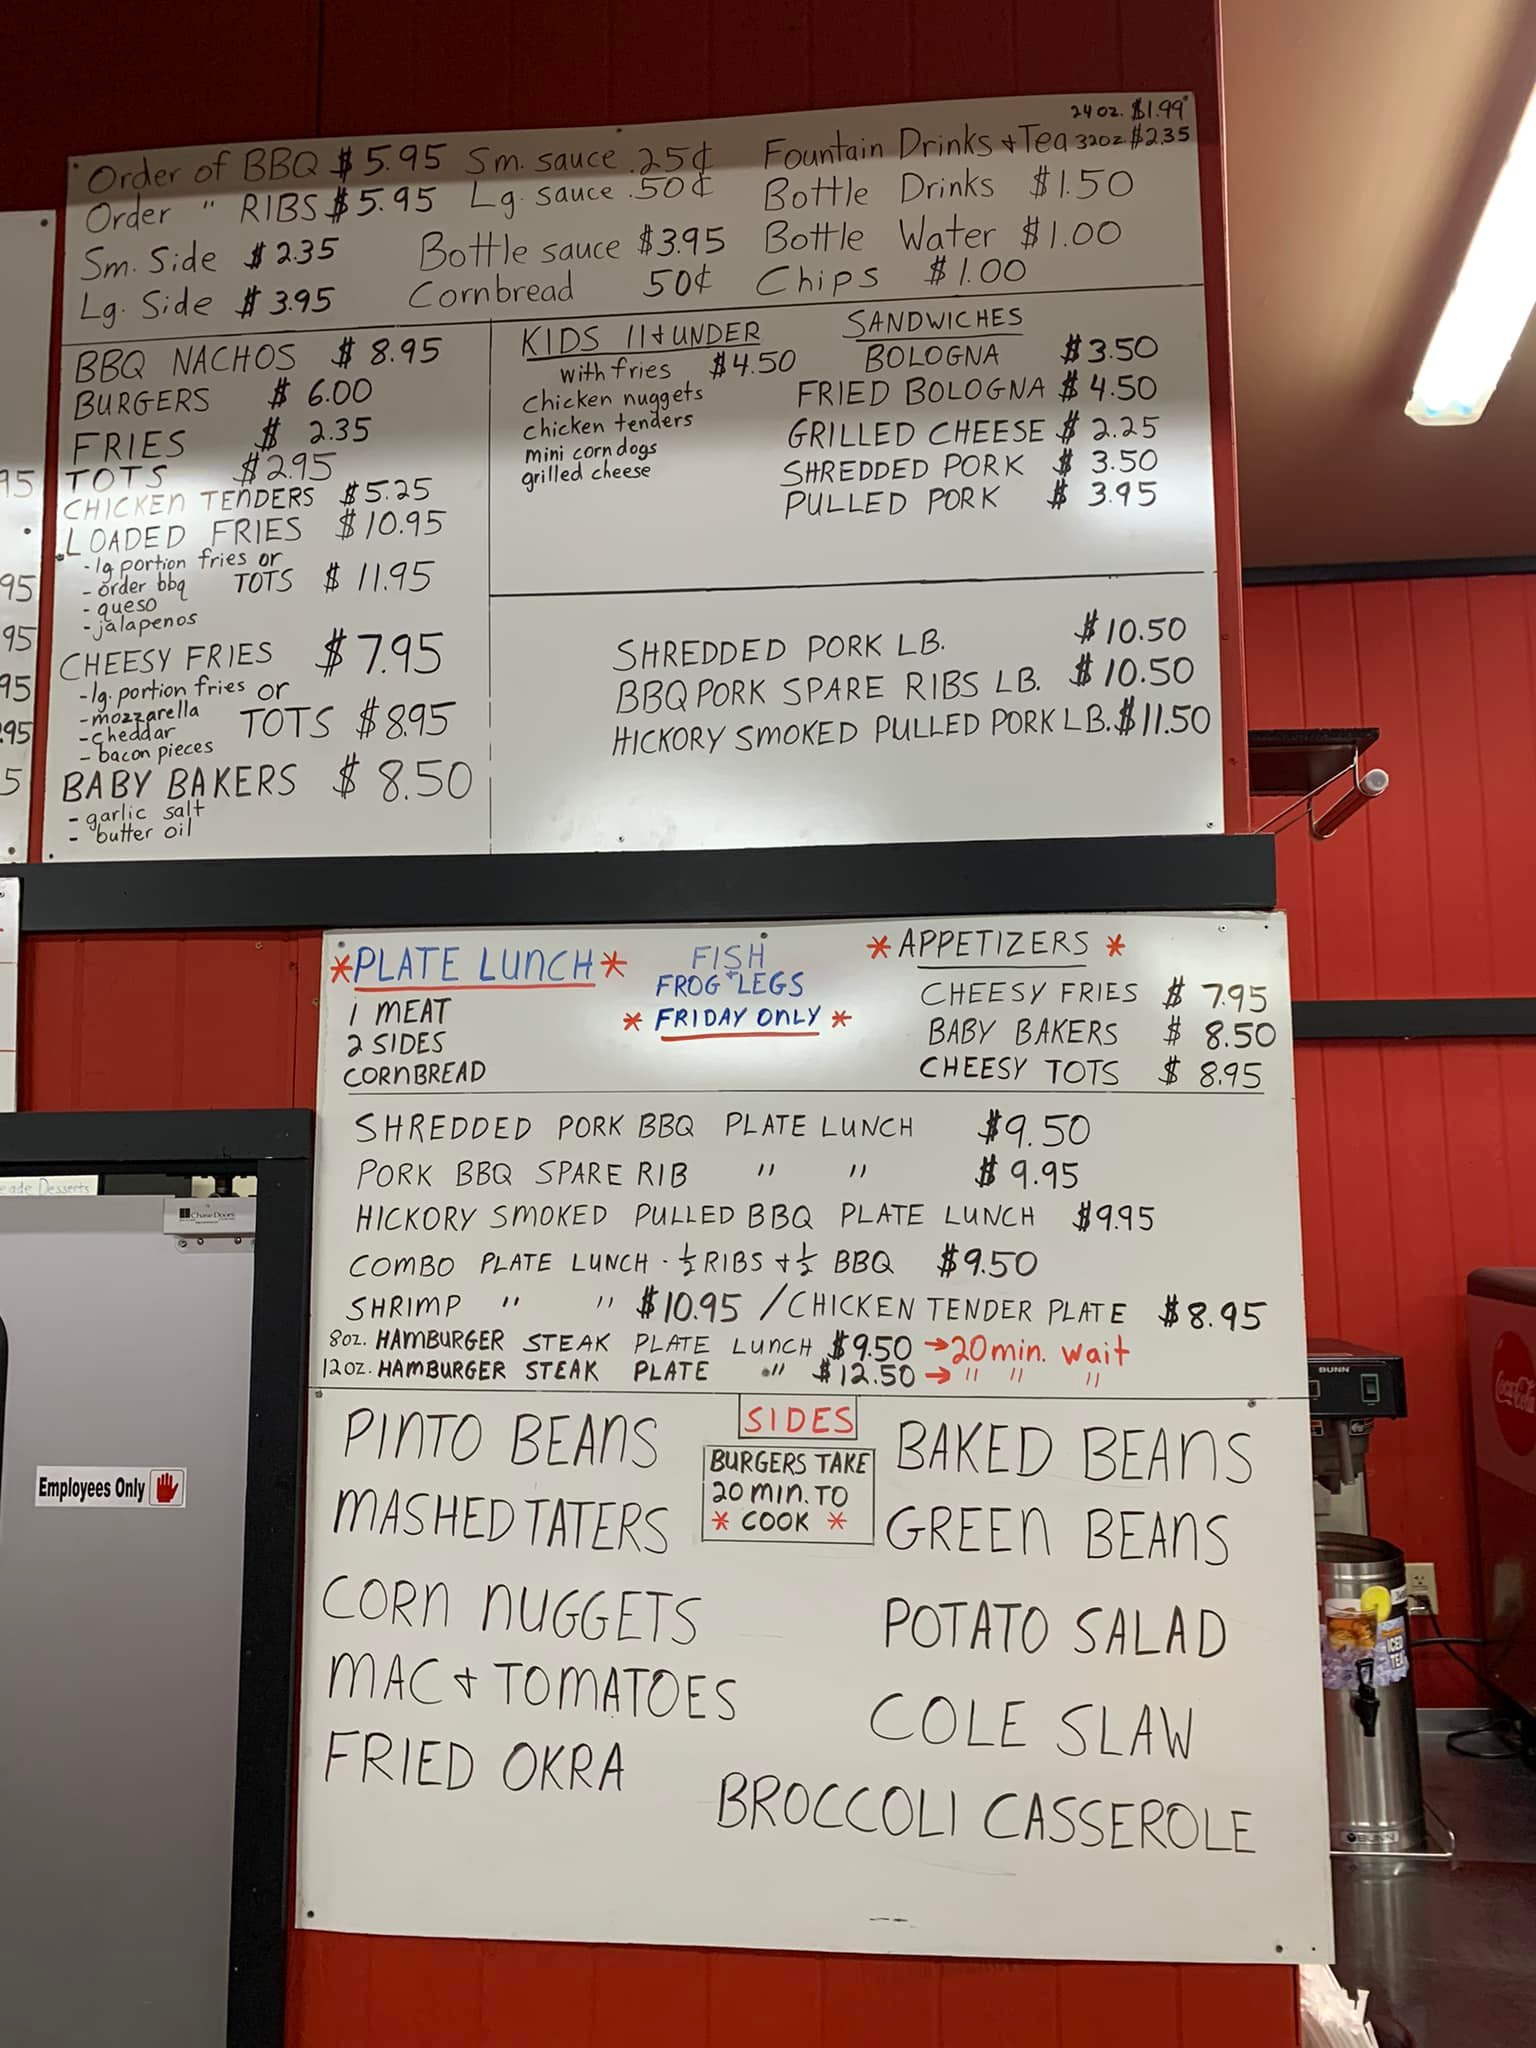 24 oz. $1.99
Order of BBQ $5.95 Sm. sauce .25¢ Fountain Drinks & Tea 32oz. $2.35
Order " RIBS $5.95 Lg. sauce .50¢ Bottle Drinks $1.50
Sm. Side $2.35 Bottle sauce $3.95 Bottle Water $1.00
Lg. Side $3.95 Cornbread 50¢ Chips $1.00
BBQ NACHOS $8.95
BURGERS $6.00
FRIES $2.35
TOTS $2.95
CHICKEN TENDERS $5.25
LOADED FRIES $10.95
- lg portion fries or
- order bbq TOTS $11.95
- queso
- jalapenos
CHEESY FRIES $7.95
- lg. portion fries or
- mozzarella TOTS $8.95
- cheddar
- bacon pieces
BABY BAKERS $8.50
- garlic salt
- butter oil
KIDS 11 & UNDER
with fries $4.50
chicken nuggets
chicken tenders
mini corn dogs
grilled cheese
SANDWICHES
BOLOGNA $3.50
FRIED BOLOGNA $4.50
GRILLED CHEESE $2.25
SHREDDED PORK $3.50
PULLED PORK $3.95
SHREDDED PORK LB. $10.50
BBQ PORK SPARE RIBS LB. $10.50
HICKORY SMOKED PULLED PORK LB. $11.50
95
95
95
95
.95
5
*PLATE LUNCH*
1 MEAT
2 SIDES
CORNBREAD
FISH
FROG & LEGS
* FRIDAY ONLY *
* APPETIZERS *
CHEESY FRIES $7.95
BABY BAKERS $8.50
CHEESY TOTS $8.95
SHREDDED PORK BBQ PLATE LUNCH $9.50
PORK BBQ SPARE RIB " " $9.95
HICKORY SMOKED PULLED BBQ PLATE LUNCH $9.95
COMBO PLATE LUNCH - ½ RIBS & ½ BBQ $9.50
SHRIMP " " $10.95 / CHICKEN TENDER PLATE $8.95
8oz. HAMBURGER STEAK PLATE LUNCH $9.50 → 20 min. wait
12oz. HAMBURGER STEAK PLATE " $12.50 → " " "
SIDES
BURGERS TAKE
20 MIN. TO
* COOK *
PINTO BEANS
MASHED TATERS
CORN NUGGETS
MAC & TOMATOES
FRIED OKRA
BAKED BEANS
GREEN BEANS
POTATO SALAD
COLE SLAW
BROCCOLI CASSEROLE
eade Desserts
Chase Doors
Employees Only
BUNN
Coca-Cola
ICED
TEA
BUNN